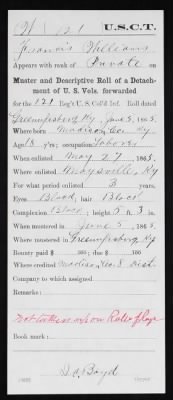 W 121 U.S.C.T.
Francis Williams
Appears with rank of Private on
Muster and Descriptive Roll of a Detach-
ment of U. S. Vols. forwarded
for the 121 Reg't U. S. Col'd Inf. Roll dated
Greenupsburg, Ky. June 5, 1865.
Where born Madison Co. Ky
Age 18 y'rs; occupation Laborer
When enlisted May 27, 1865.
Where enlisted Maysville, Ky
For what period enlisted 3 years.
Eyes Black; hair Black
Complexion Black; height 5 ft. 3 in.
When mustered in June 5, 1865.
Where mustered in Greenupsburg, Ky
Bounty paid $ 100; due $ 100
Where credited Madison Co. 8 Dist
Company to which assigned
Remarks:
Not taken up on Rolls of
Book mark:
S. C. Boyd